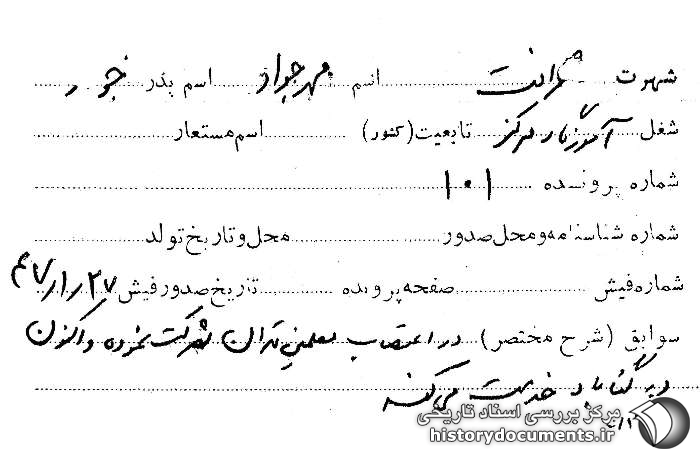 شهرت اسم محمد جواد اسم پدر
شغل آموزگار مرکز تابعیت (کشور) اسم مستعار
شماره پرونده ۱۰۱
شماره شناسنامه و محل صدور محل و تاریخ تولد
شماره فیش صفحه پرونده تاریخ صدور فیش ۴۷/۱/۲۷
سوابق (شرح مختصر) در اعتصاب معلمین تهران شرکت نموده و اکنون
در گناباد خدمت می‌کند
مرکز بررسی اسناد تاریخی
historydocuments.ir